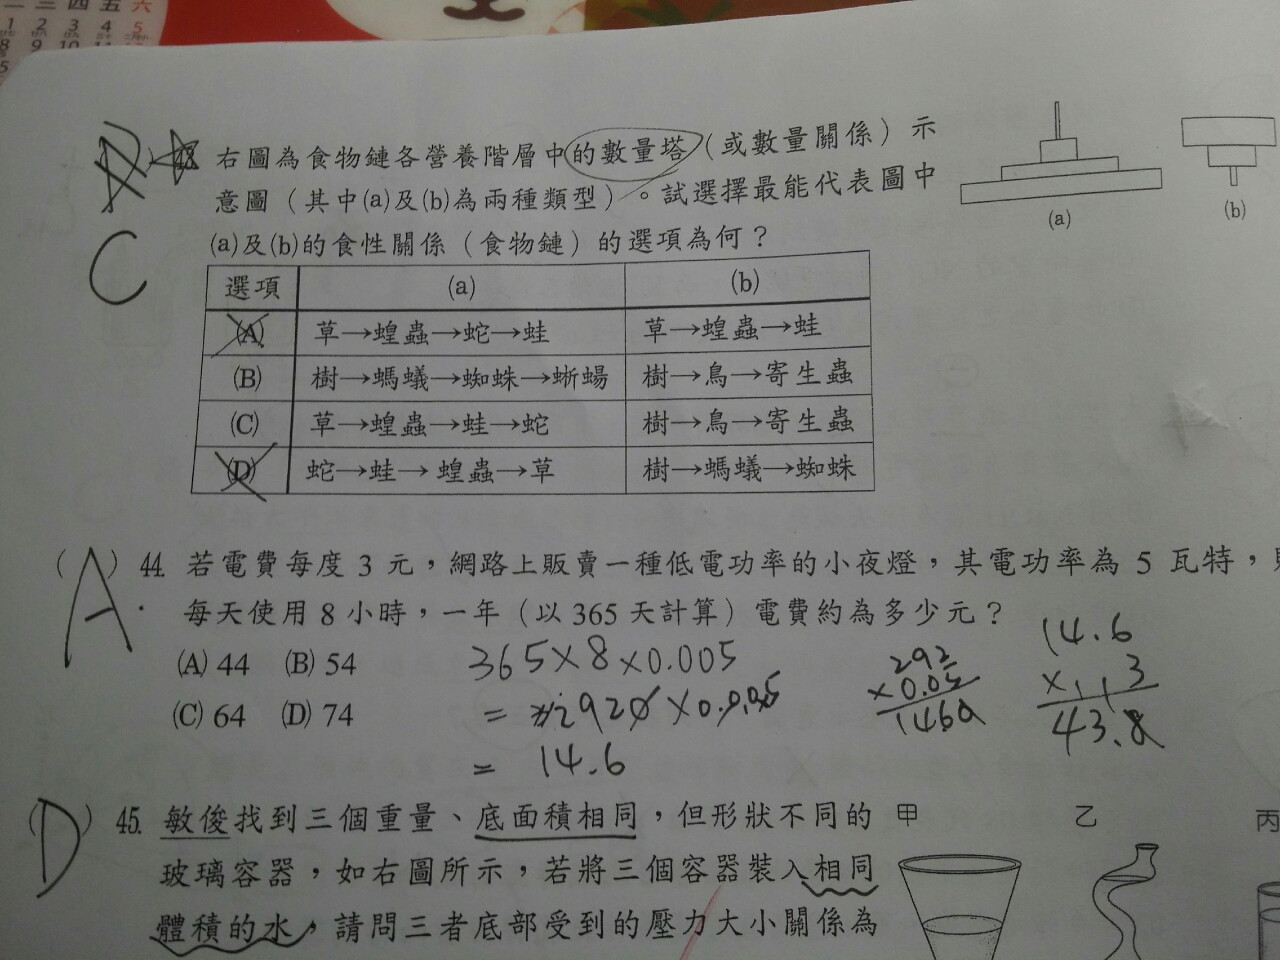 二 三 四 五 六
1 2 3 4 5
8 9 10 11
5
右圖為食物鏈各營養階層中的數量塔(或數量關係)示
意圖(其中(a)及(b)為兩種類型)。試選擇最能代表圖中
(a)及(b)的食性關係(食物鏈)的選項為何?
(a)
(b)
C
選項 (a) (b)
(A) 草→蝗蟲→蛇→蛙 草→蝗蟲→蛙
(B) 樹→螞蟻→蜘蛛→蜥蜴 樹→鳥→寄生蟲
(C) 草→蝗蟲→蛙→蛇 樹→鳥→寄生蟲
(D) 蛇→蛙→蝗蟲→草 樹→螞蟻→蜘蛛
(A.) 44. 若電費每度 3 元,網路上販賣一種低電功率的小夜燈,其電功率為 5 瓦特,
每天使用 8 小時,一年(以 365 天計算)電費約為多少元?
(A) 44 (B) 54
(C) 64 (D) 74
365×8×0.005
=
= 14.6
292
×0.05
1460
14.6
× 3
43.8
(D) 45. 敏俊找到三個重量、底面積相同,但形狀不同的
玻璃容器,如右圖所示,若將三個容器裝入相同
體積的水,請問三者底部受到的壓力大小關係為
甲 乙 丙